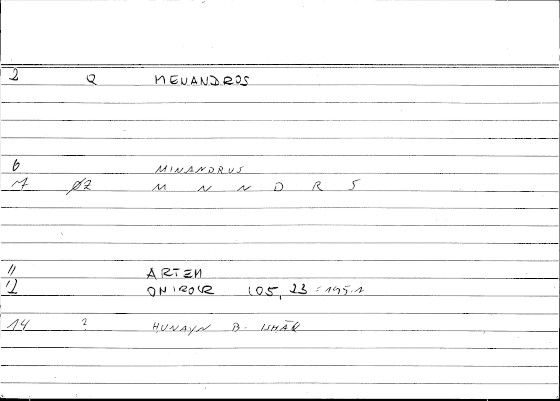 2 Q MENANDROS
6 MINANDRUS
7 ØZ M N N D R S
11 ARTEM
12 ONIROCR 105, 23 = 195.1
14 2 HUNAYN B. ISHĀQ